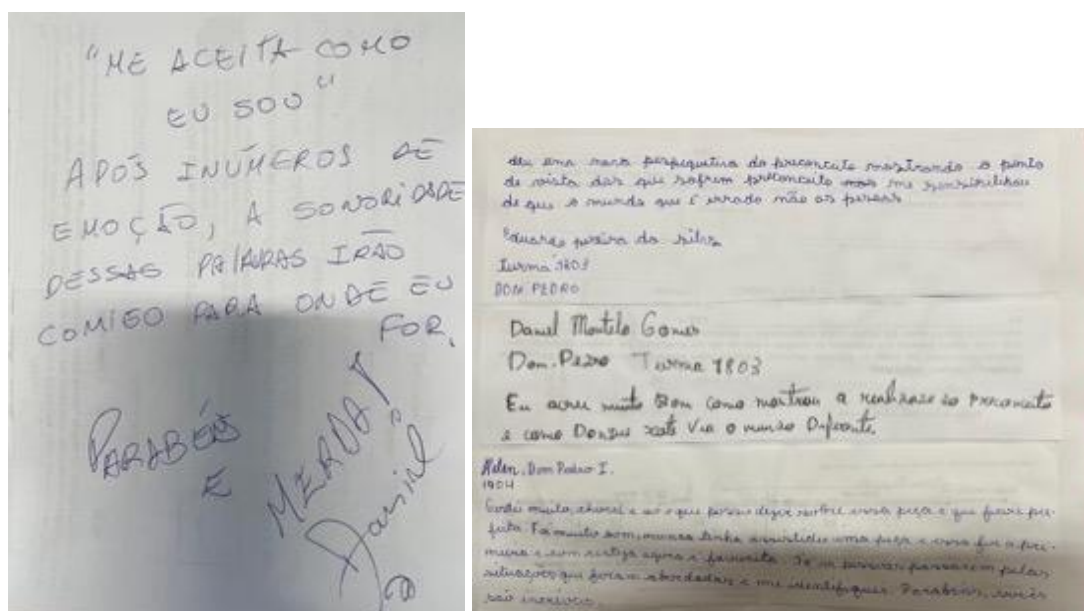 "ME ACEITA COMO
EU SOU"
APÓS INÚMEROS DE
EMOÇÃO, A SONORIDADE
DESSAS PALAVRAS IRÃO
COMIGO PARA ONDE EU
FOR.
PARABÉNS
E
MERDA!
Daniel
deu uma nova do preconceito mostrando o ponto
de vista das que sofrem preconceito mas me sensibilizou
de que o mundo que é errado não as pessoas
Eduardo pereira da silva
Turma 1803
DOM PEDRO
Daniel Gomes
Dom. Pedro Turma 1803
Eu muito Bom como mostrou a realidade do Preconceito
e como via o mundo Diferente.
Dom Pedro I.
1904
muito, chorei e só o que posso dizer sobre essa peça é que foi per-
feita. Foi muito bom, nunca tinha assistido uma peça e essa foi a pri-
meira e com certeza agora a favorita. Já vi pessoas passarem pelas
situações que foram abordadas e me identifiquei. Parabéns, vocês
são incríveis.